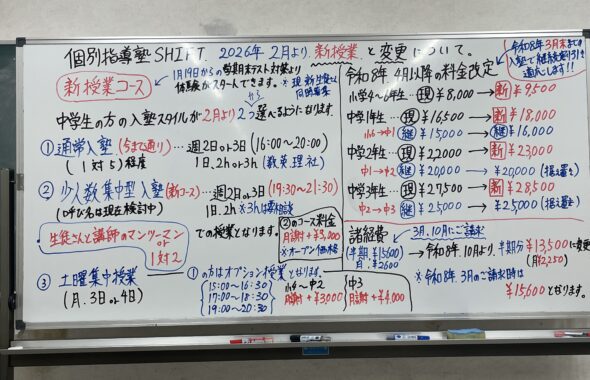 個別指導塾SHIFT 2026年2月より、新授業と変更について。
令和8年3月末までの
入塾で継続割引を
適応します!!
新授業コース
1月19日からの学期末テスト対策より
体験がスタートできます。※現・新生徒さん
同時募集
令和8年4月以降の料金改定
小学4〜6年生…現¥8,000→新¥9,500
中学生の方の入塾スタイルが2月から2つ選べるようになります。
より
中学1年生…現¥16,500→新¥18,000
小6→中1 継¥15,000→継¥16,000
①通常入塾(今まで通り)…週2日or3日(16:00〜20:00)
(1対5)程度 1日、2hor3h(数英理社)
中学2年生…現¥22,000→新¥23,000
中1→中2 継¥20,000→¥20,000(据え置き)
②少人数集中型入塾(新コース)…週2日or3日(19:30〜21:30)
(呼び名は現在検討中) 1日、2h ※3hは要相談
中学3年生…現¥27,500→新¥28,500
中2→中3 継¥25,000→¥25,000(据え置き)
生徒さんと講師のマンツーマン
or
1対2
での授業となります。
②のコース料金
月謝+¥5,000
※オープン価格
諸経費
(半期、¥15,600)
月、¥2,600
3月、10月にご請求
→令和8年、10月より、半期分¥13,500に変更
(月¥2,250)
※令和8年、3月のご請求時は
¥15,600となります。
③土曜集中授業
(月、3日or4日)
①の方はオプション授業となります。
15:00〜16:30
17:00〜18:30
19:00〜20:30
小4〜中2
月謝+¥3,000
中3
月謝+¥4,000